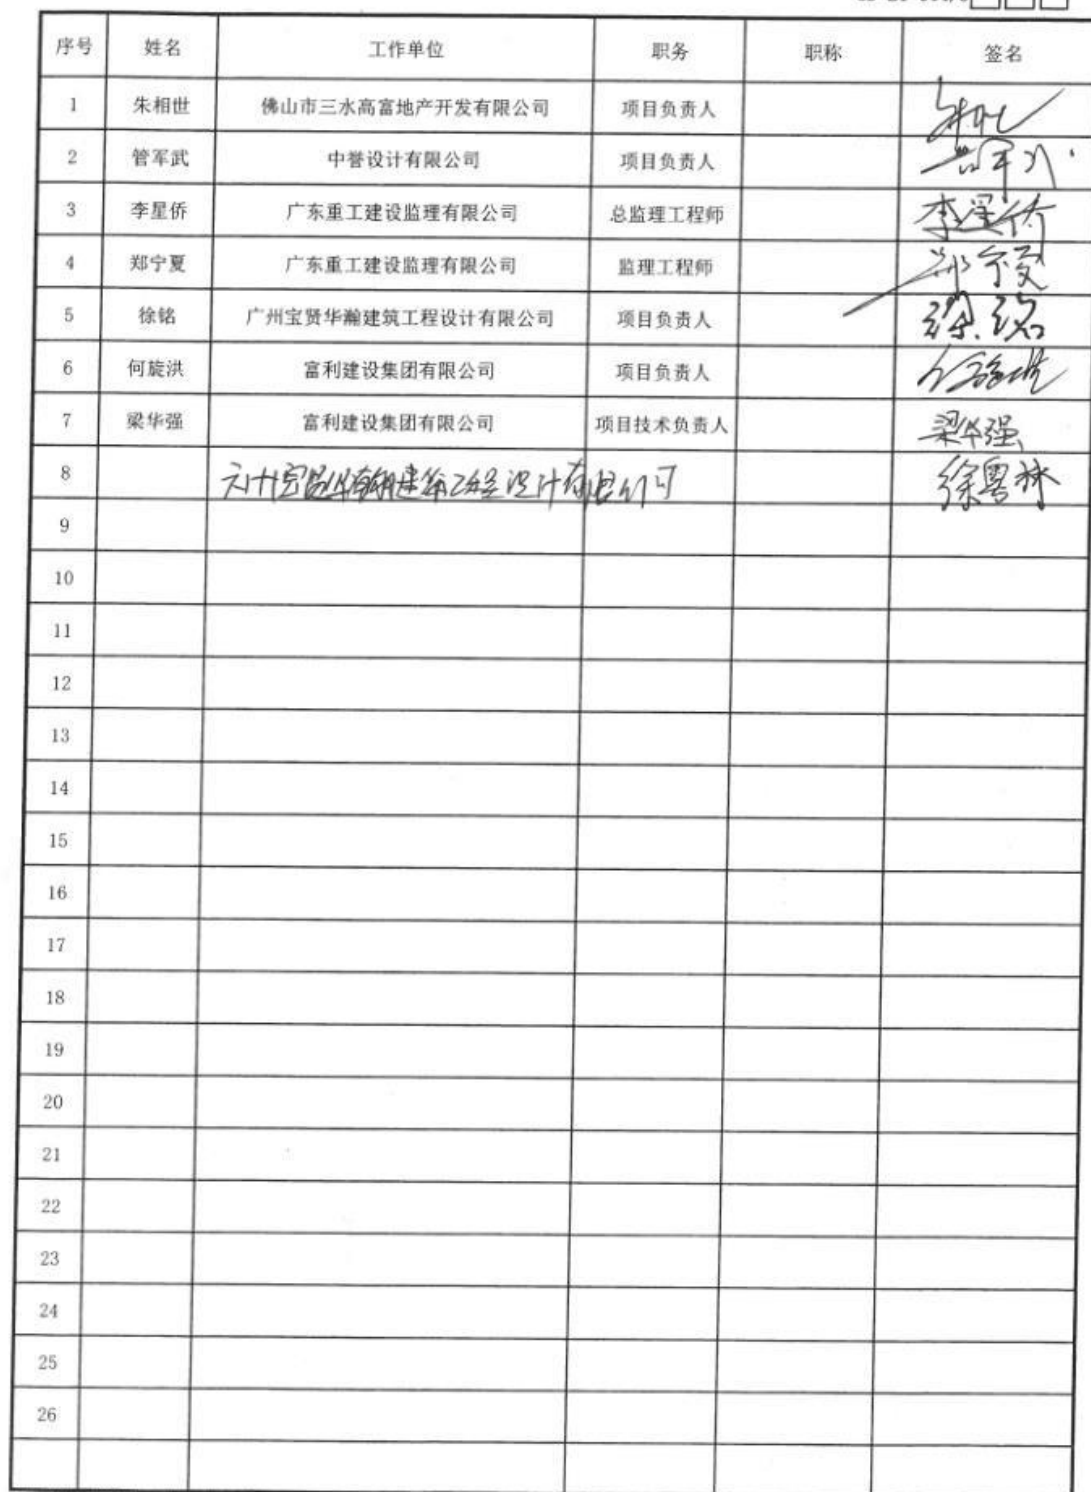 序号 姓名 工作单位 职务 职称 签名
1 朱相世 佛山市三水高富地产开发有限公司 项目负责人
2 管军武 中誉设计有限公司 项目负责人
3 李星侨 广东重工建设监理有限公司 总监理工程师 李星侨
4 郑宁夏 广东重工建设监理有限公司 监理工程师 郑宁夏
5 徐铭 广州宝贤华瀚建筑工程设计有限公司 项目负责人 徐铭
6 何旋洪 富利建设集团有限公司 项目负责人 何旋洪
7 梁华强 富利建设集团有限公司 项目技术负责人 梁华强
8 广州宝贤华瀚建筑工程设计有限公司 徐粤林
9
10
11
12
13
14
15
16
17
18
19
20
21
22
23
24
25
26